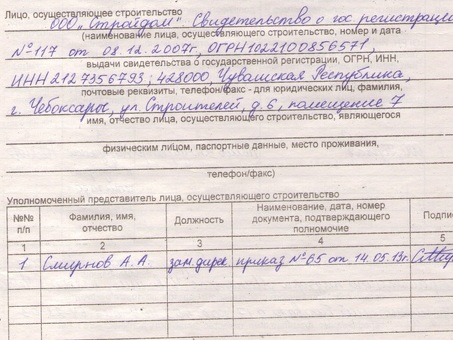 Лицо, осуществляющее строительство
ООО „Стройдом". Свидетельство о гос. регистрации
(наименование лица, осуществляющего строительство, номер и дата
№117 от 08.12.2007г, ОГРН1022100856571,
выдачи свидетельства о государственной регистрации, ОГРН, ИНН,
ИНН2127356793; 428000 Чувашская Республика,
почтовые реквизиты, телефон/факс - для юридических лиц, фамилия,
г. Чебоксары, ул. Строителей, д. 6, помещение 7
имя, отчество лица, осуществляющего строительство, являющегося
физическим лицом, паспортные данные, место проживания,
телефон/факс)
Уполномоченный представитель лица, осуществляющего строительство
№№ п/п Фамилия, имя, отчество Должность Наименование, дата, номер документа, подтверждающего полномочие Подпис
1 2 3 4 5
1 Смирнов А.А. зам. дирек приказ №65 от 14.05.13г.